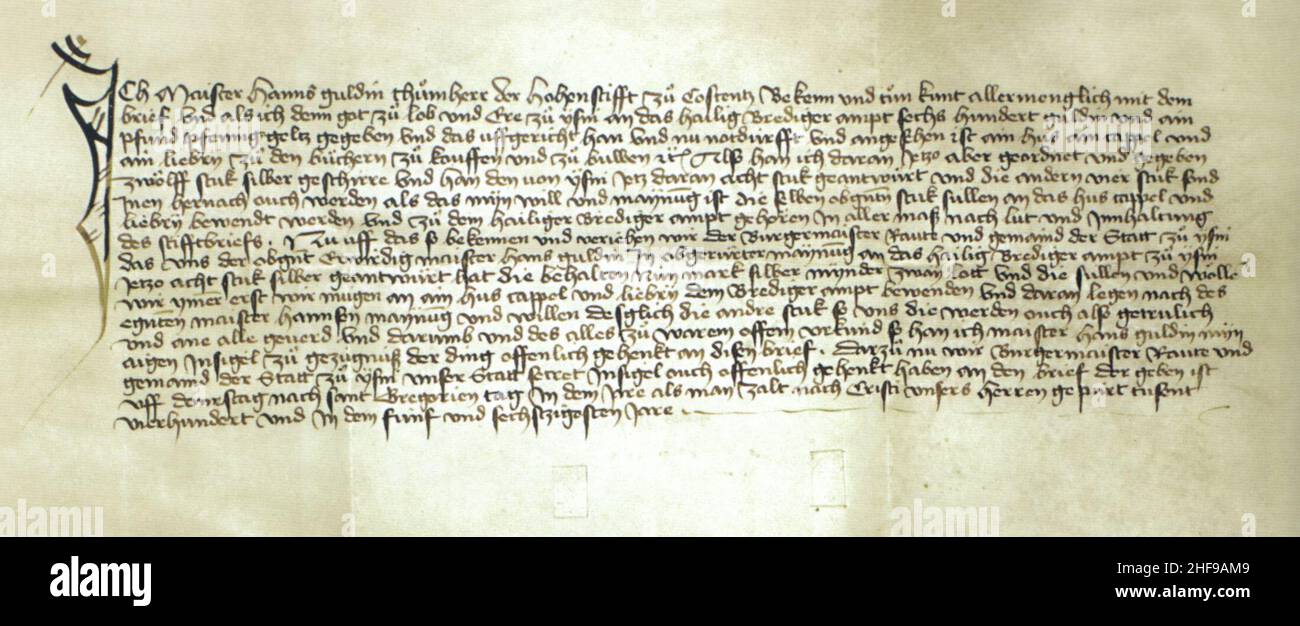 Ich Maister Hanns guldin thůmherr der Hohenstifft zů Costentz Bekenn und tůn kunt allermenglich mit dem
brief Und als ich dem got zů lob und Ere zů ysni an das hailig Brediger ampt sechs hundert guldin und ain
pfund pfenning geltz gegeben Und das uffgericht han Und nu notdurfft und angesehen ist ain hus ain cappel und
ain liebry zů den bůchern zů kouffen und zů buwen Also han ich daran Jetzo aber geordnet und gegeben
zwölff stuk silber geschirre Und han den von ysni Jetz daran acht stuk geantwürt und die andern vier stuk sond
Inen hernach ouch werden als das myn will und maynung ist die selben obgnten stuk sullen an das hus cappel und
liebry bewendt werden Und zů dem hailiger Brediger ampt gehoren In aller maß nach lut und Innhaltung
des stifftbriefs. Nu uff das so bekennen und veriehen wir der Burgermaister Raute und gemaind der Statt zů ysni
das uns der obgnt Erwirdig maister Hans guldin In obgerürter maynung an das hailig Brediger ampt zů ysni
Jetzo acht stuk silber geantwürt hat die behalten mark silber mynder zway lott Und die sullen und wolle
wir ymer erst wir mugen an ain Hus cappel Und liebry dem Brediger ampt bewenden Und daran legen nach des
egnten maister Hannsen maynung und willen desglich die andre stuk so uns die werden ouch also getrulich
und ane alle geuerd Und darumb und des alles zů warem offem urkund so han ich maister Hans guldin myn
aigen Insigel zů gezügnuß der ding offenlich gehenkt an disen brief. Darzů nu wir Burgermaister Raute und
gemaind der Statt zů ysni unser Statt secret Insigel ouch offenlich gehenkt haben an den brief der geben ist
uff donrstag nach sant Gregorien tag In dem Jare als man zalt nach Cristi unsers Herren gepürt tusent
vierhundert und In dem fünf und sechszigosten Jare
alamy
Image ID: 2HF9AM9
www.alamy.com